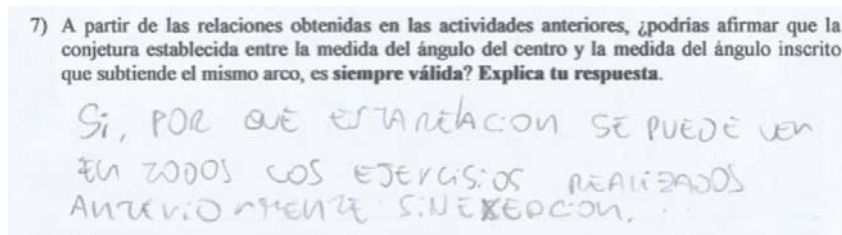 7) A partir de las relaciones obtenidas en las actividades anteriores, ¿podrías afirmar que la
conjetura establecida entre la medida del ángulo del centro y la medida del ángulo inscrito
que subtiende el mismo arco, es siempre válida? Explica tu respuesta.
Si, POR QUE ESTA RELACION SE PUEDE VER
EN TODOS LOS EJERCISIOS REALIZADOS
ANTERIORMENTE SIN EXEPCION.